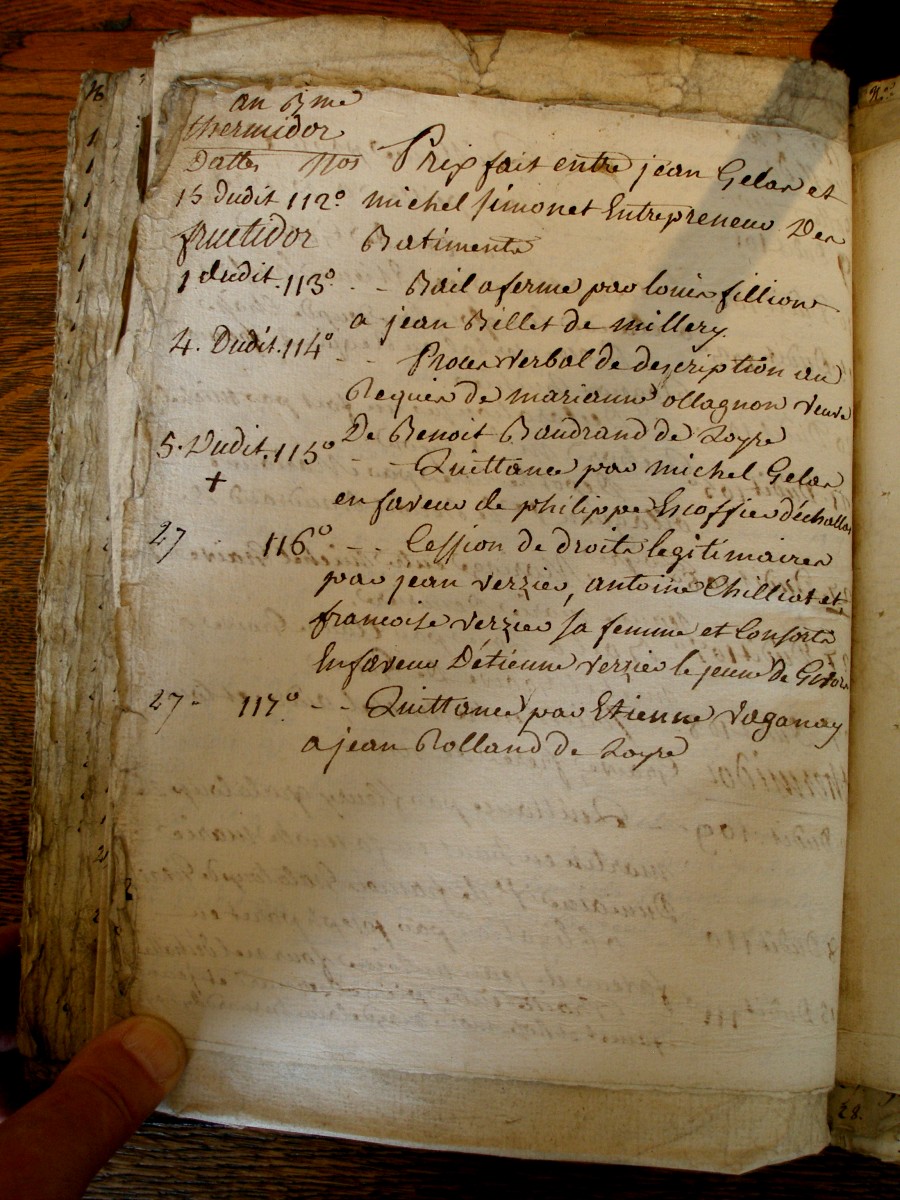 an
thermidor
Dattes Nos Prix fait entre jean Gelas et
15 dudit 112º michel simonet Entrepreneur Des
fructidor Batiments
1 dudit. 113º - - Bail a ferme par louis fillion
a jean Billet de millery
4. Dudit. 114º - - Proces verbal de description au
Requis de marianne ollagnon veuve
De Benoit Baudrand de Loyre
5. Dudit. 115º - - Quittance par michel Gelas
+ en faveur de philippe Escoffier d'échallas
27 116º - - Cession de droits legitimaires
par jean verzier, antoine Chilliat et
francoise verzier sa femme et Consorts
En faveur D'étienne verzier le jeune de Givors
27 - 117º - - Quittance par Etienne vaganay
a jean Rolland de Loyre
28.